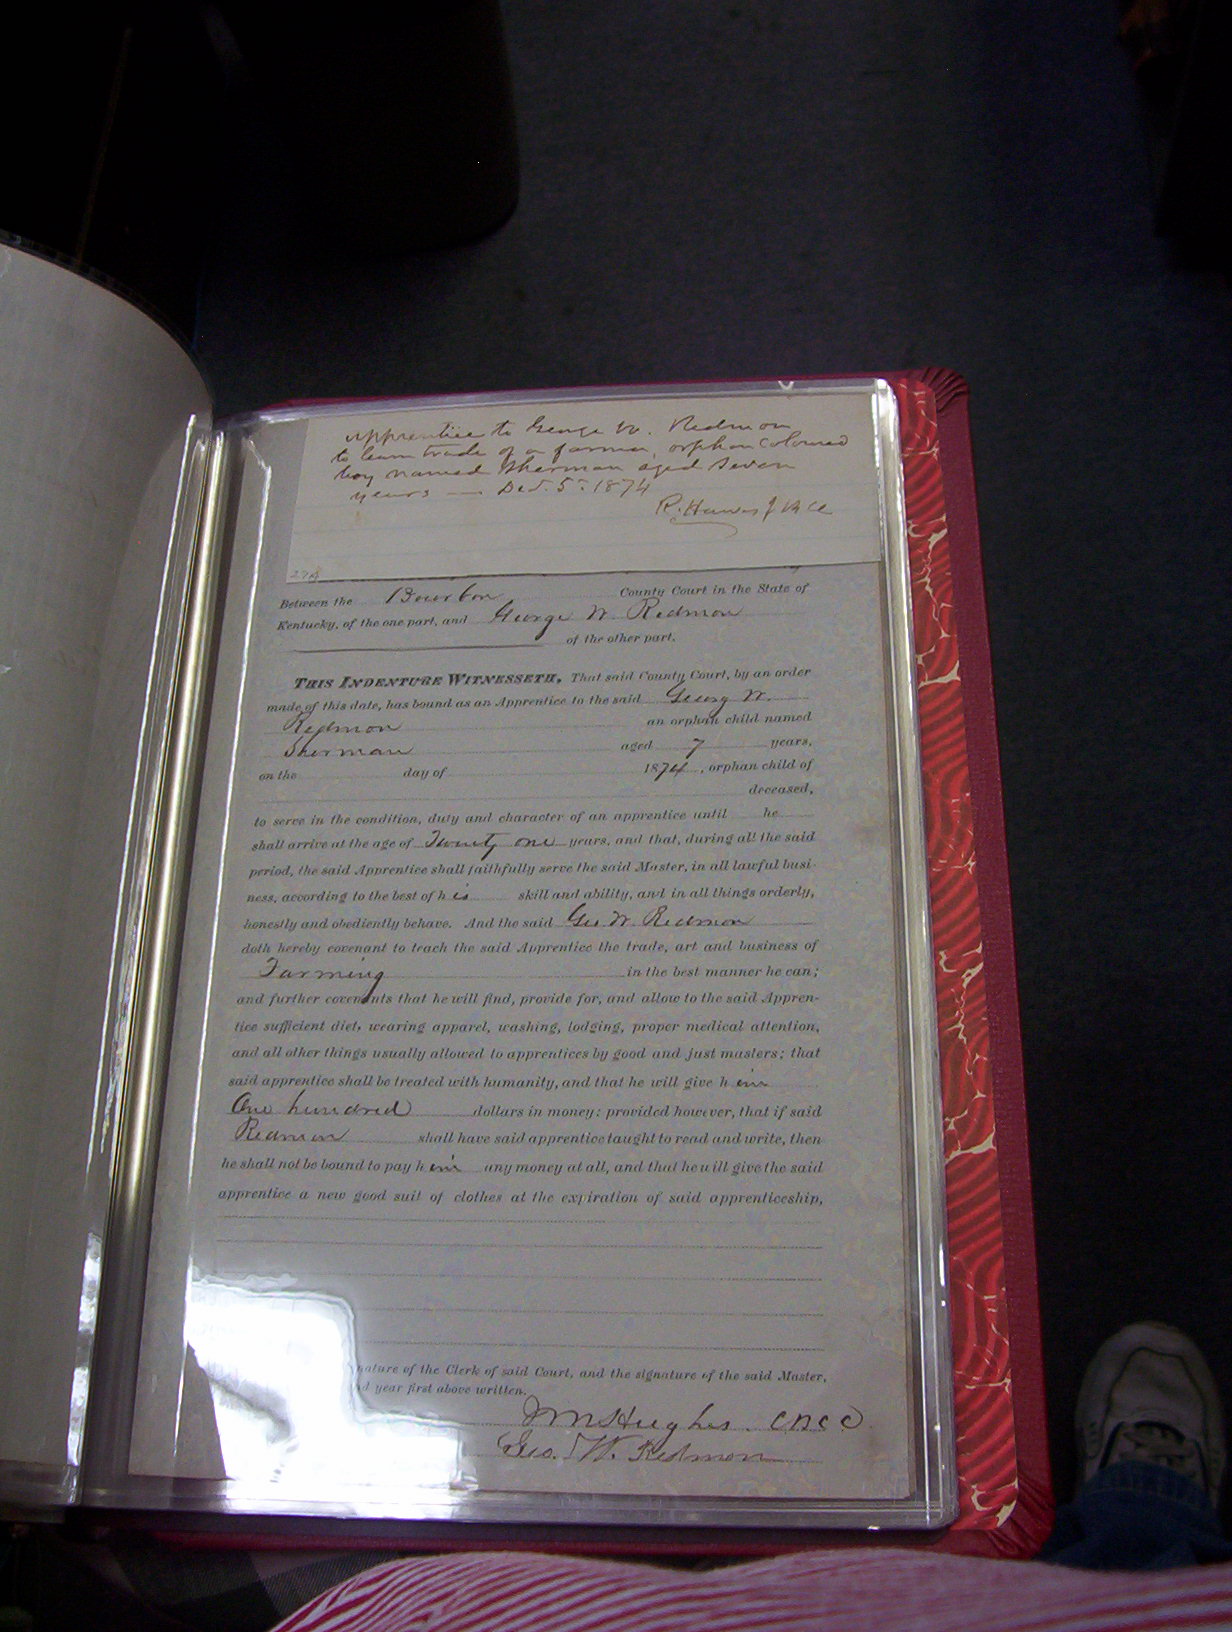 Apprentice to George W. Redmon
to learn trade of a farmer, orphan Coloured
boy named Sherman aged Seven
years — Dec. 5th 1874
R. Hawes J B C C
27A
Between the Bourbon County Court in the State of
Kentucky, of the one part, and George W Redmon
of the other part.
THIS INDENTURE WITNESSETH, That said County Court, by an order
made of this date, has bound as an Apprentice to the said Georg W.
Redmon an orphan child named
Sherman aged 7 years,
on the day of 1874, orphan child of
deceased,
to serve in the condition, duty and character of an apprentice until he
shall arrive at the age of Twenty one years, and that, during all the said
period, the said Apprentice shall faithfully serve the said Master, in all lawful busi-
ness, according to the best of his skill and ability, and in all things orderly,
honestly and obediently behave. And the said Geo W Redmon
doth hereby covenant to teach the said Apprentice the trade, art and business of
Farming in the best manner he can;
and further covenants that he will find, provide for, and allow to the said Appren-
tice sufficient diet, wearing apparel, washing, lodging, proper medical attention,
and all other things usually allowed to apprentices by good and just masters; that
said apprentice shall be treated with humanity, and that he will give him
One hundred dollars in money: provided however, that if said
Redmon shall have said apprentice taught to read and write, then
he shall not be bound to pay him any money at all, and that he will give the said
apprentice a new good suit of clothes at the expiration of said apprenticeship,
nature of the Clerk of said Court, and the signature of the said Master,
year first above written.
Hughes C B C C
Geo. W. Redmon